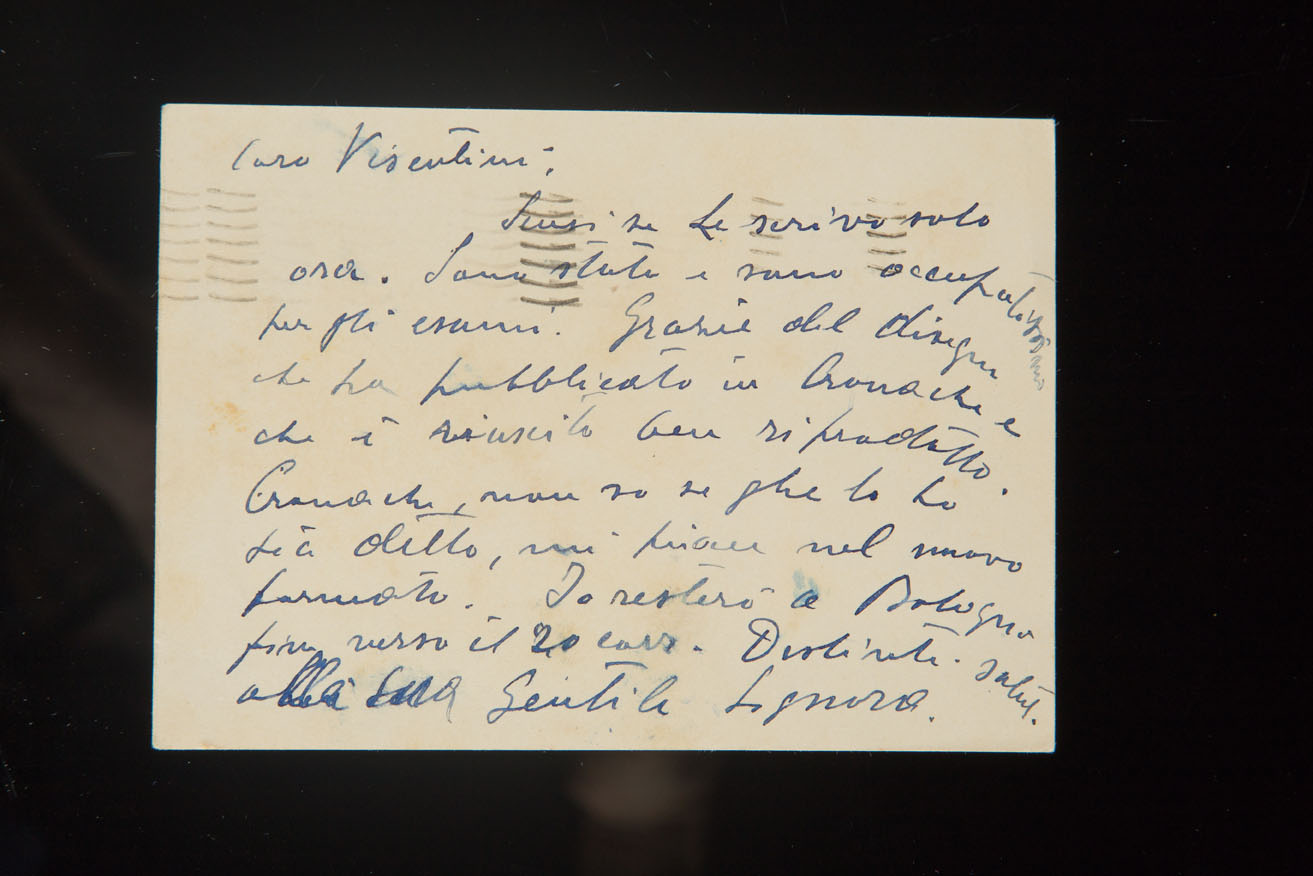 Caro Visentini,
Scusi se Le scrivo solo
ora. Sono stato e sono occupatissimo
per gli esami. Grazie del disegno
che ha pubblicato in Cronache e
che è riuscito ben riprodotto.
Cronache, non so se glie lo ho
già ditto, mi piace nel nuovo
formato. Io resterò a Bologna
fin verso il 20 corr. Distinti saluti
alla Sua Gentile Signora.